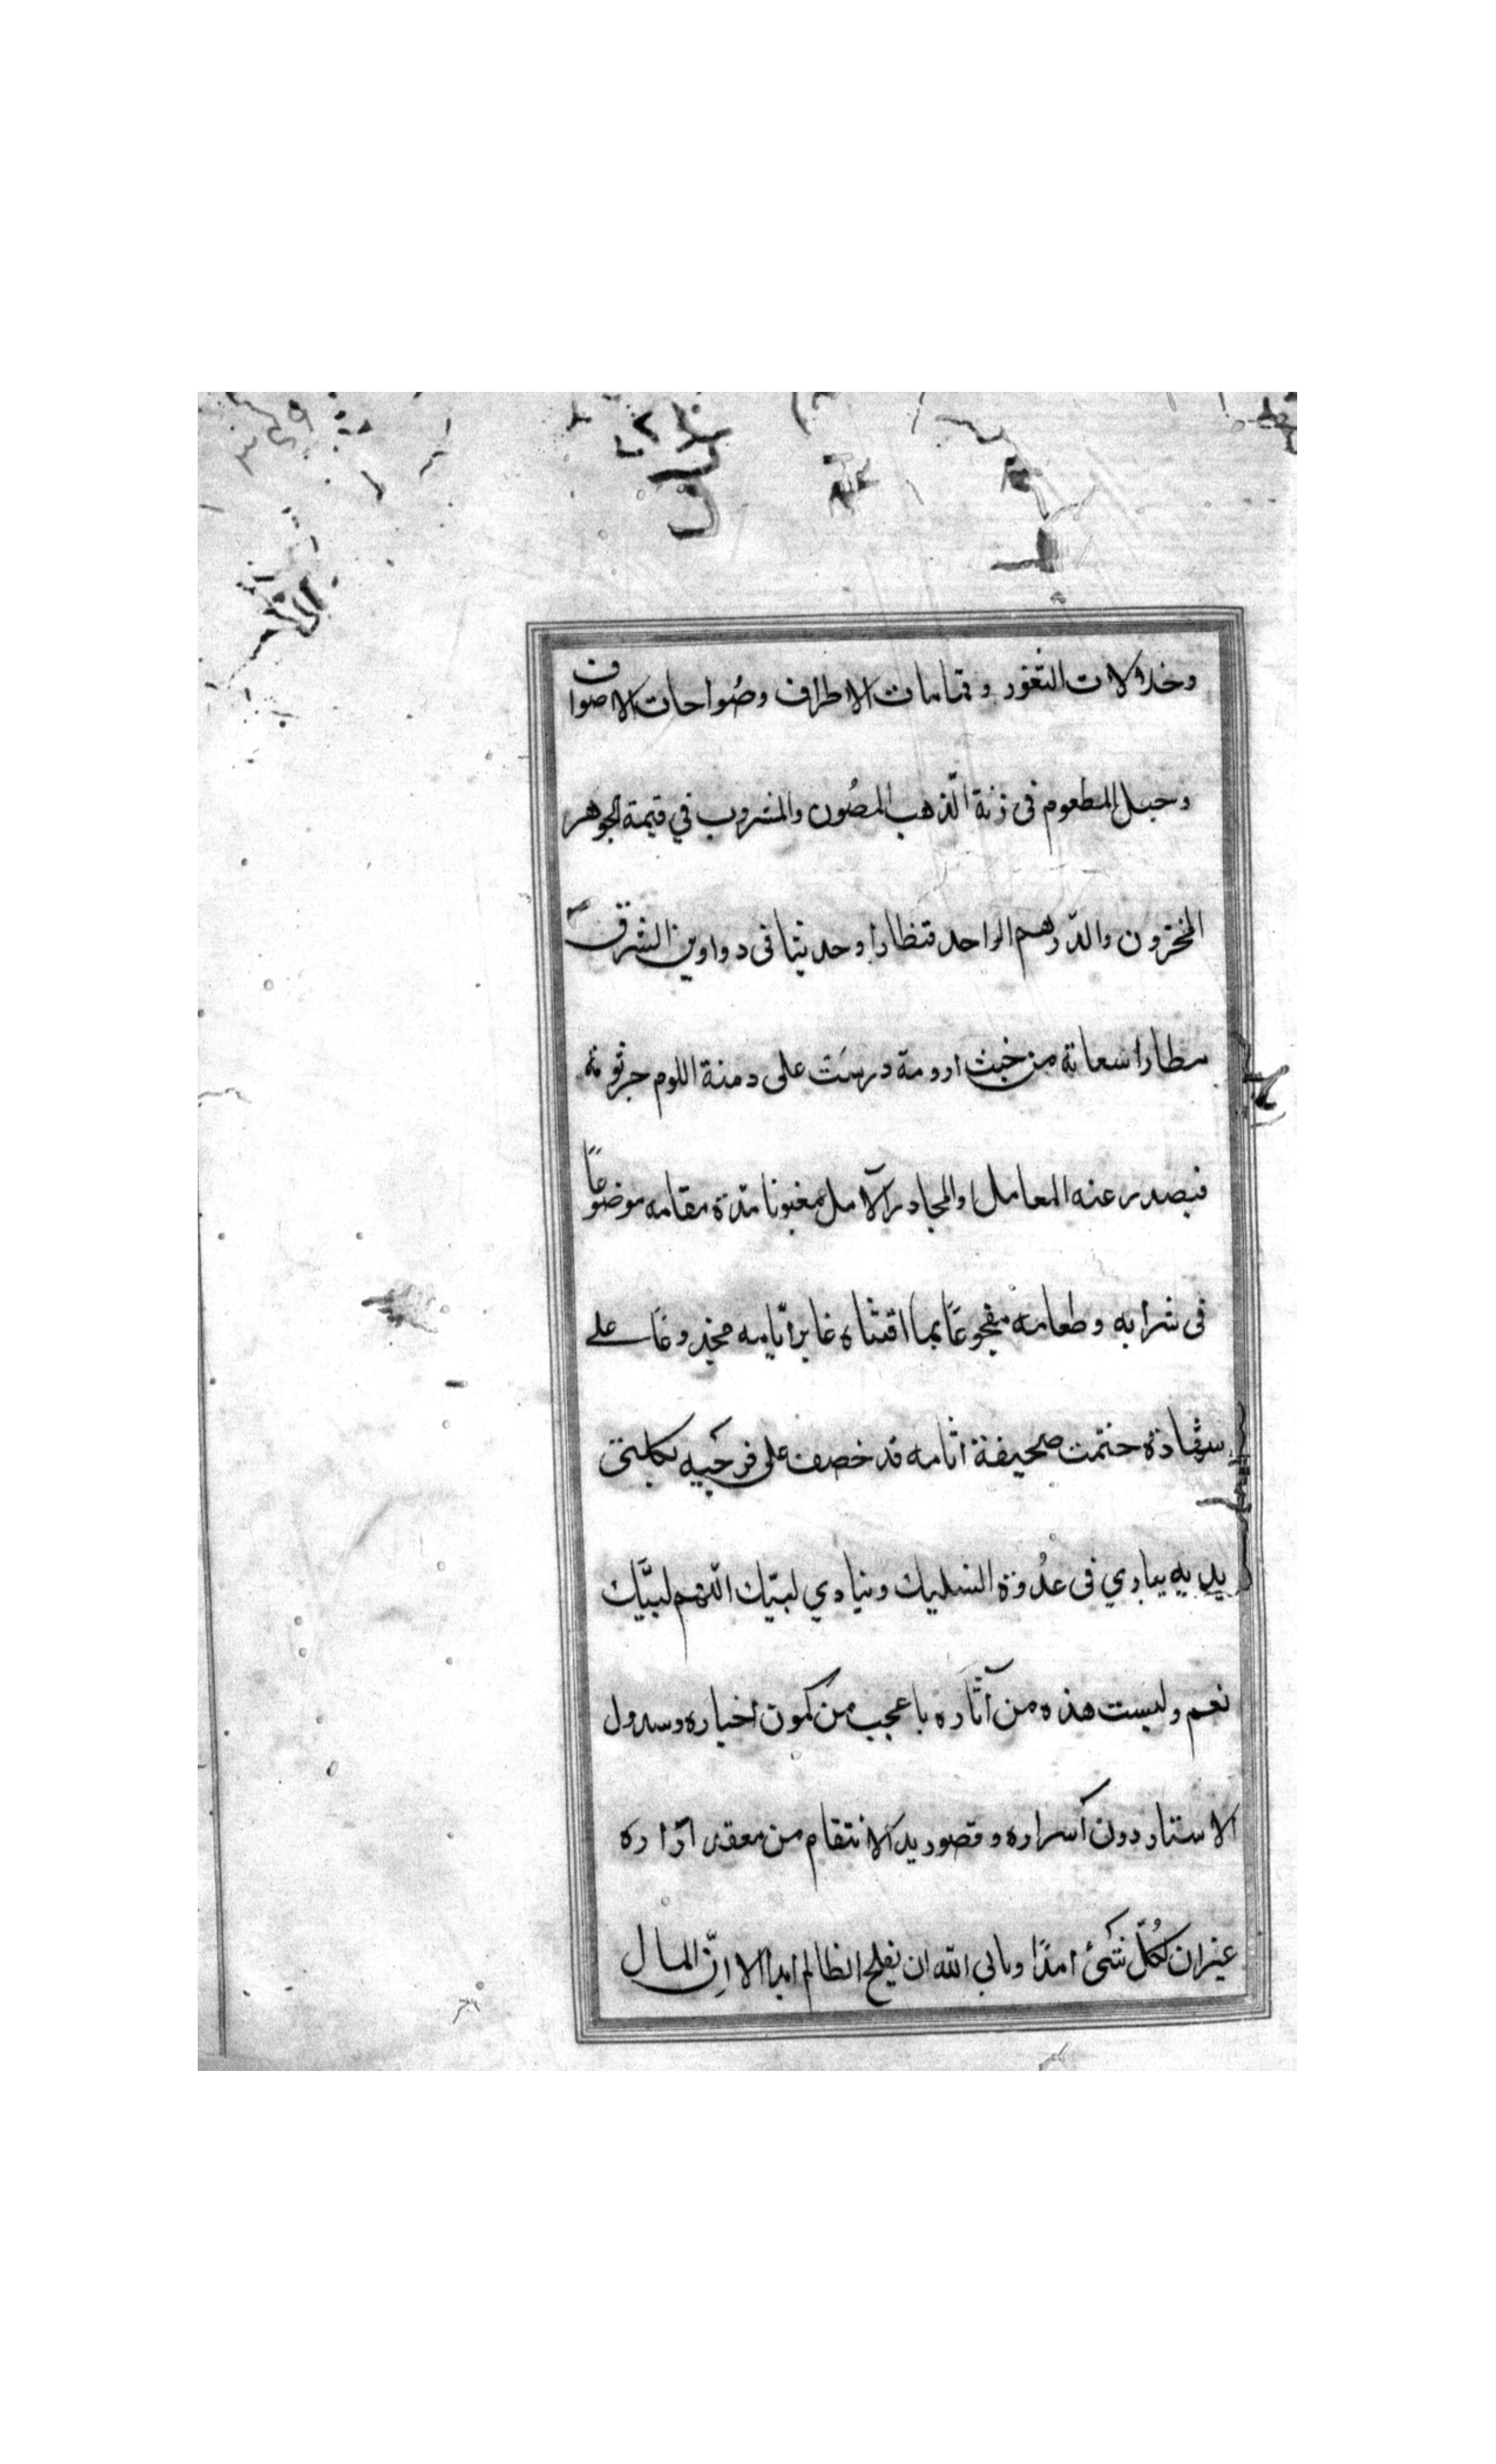 وخلالات الثغور وقمامات الاطراف وصُواحات الاصواف
وحبل المطعوم فى زنة الذّهب المصُون والمشروب في قيمة الجوهر
المخزون والدّرهم الواحد قنظارا وحديثا فى دواوين الشرق
سطارا سعاية من خبث ارومة درسَت على دمنة اللوم جرثومة
فيصدر عنه المعامل او المجادر الآمل مغبونا مدّة مقامه موضوعًا
فى شرابه وطعامه مفجوعًا بما اقتناه غابر ايّامه مخدوعًا على
شهادة ختمت صحيفة اثامه قد خصف على فرجيه بكلتى
يديه يبادي فى عدُوة السليك وينادي لبيّك اللّهم لبيَّك
نعم وليست هذه من آثاره باعجب من كمون اخباره وسدول
الاستار دون أسراره وقصور يد الانتقام من معقد ازاره
غير ان لكُلّ شئ امدًا ويابى اللّه ان يفلح الظالم ابدا الا انّ المال